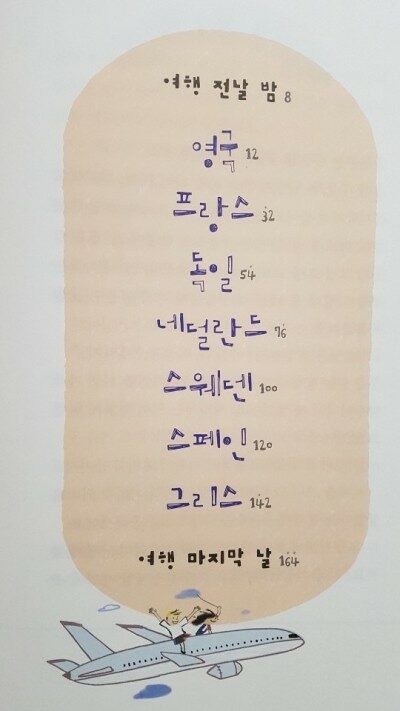 여행 전날 밤 8
영국 12
프랑스 32
독일 54
네덜란드 76
스웨덴 100
스페인 120
그리스 142
여행 마지막 날 164